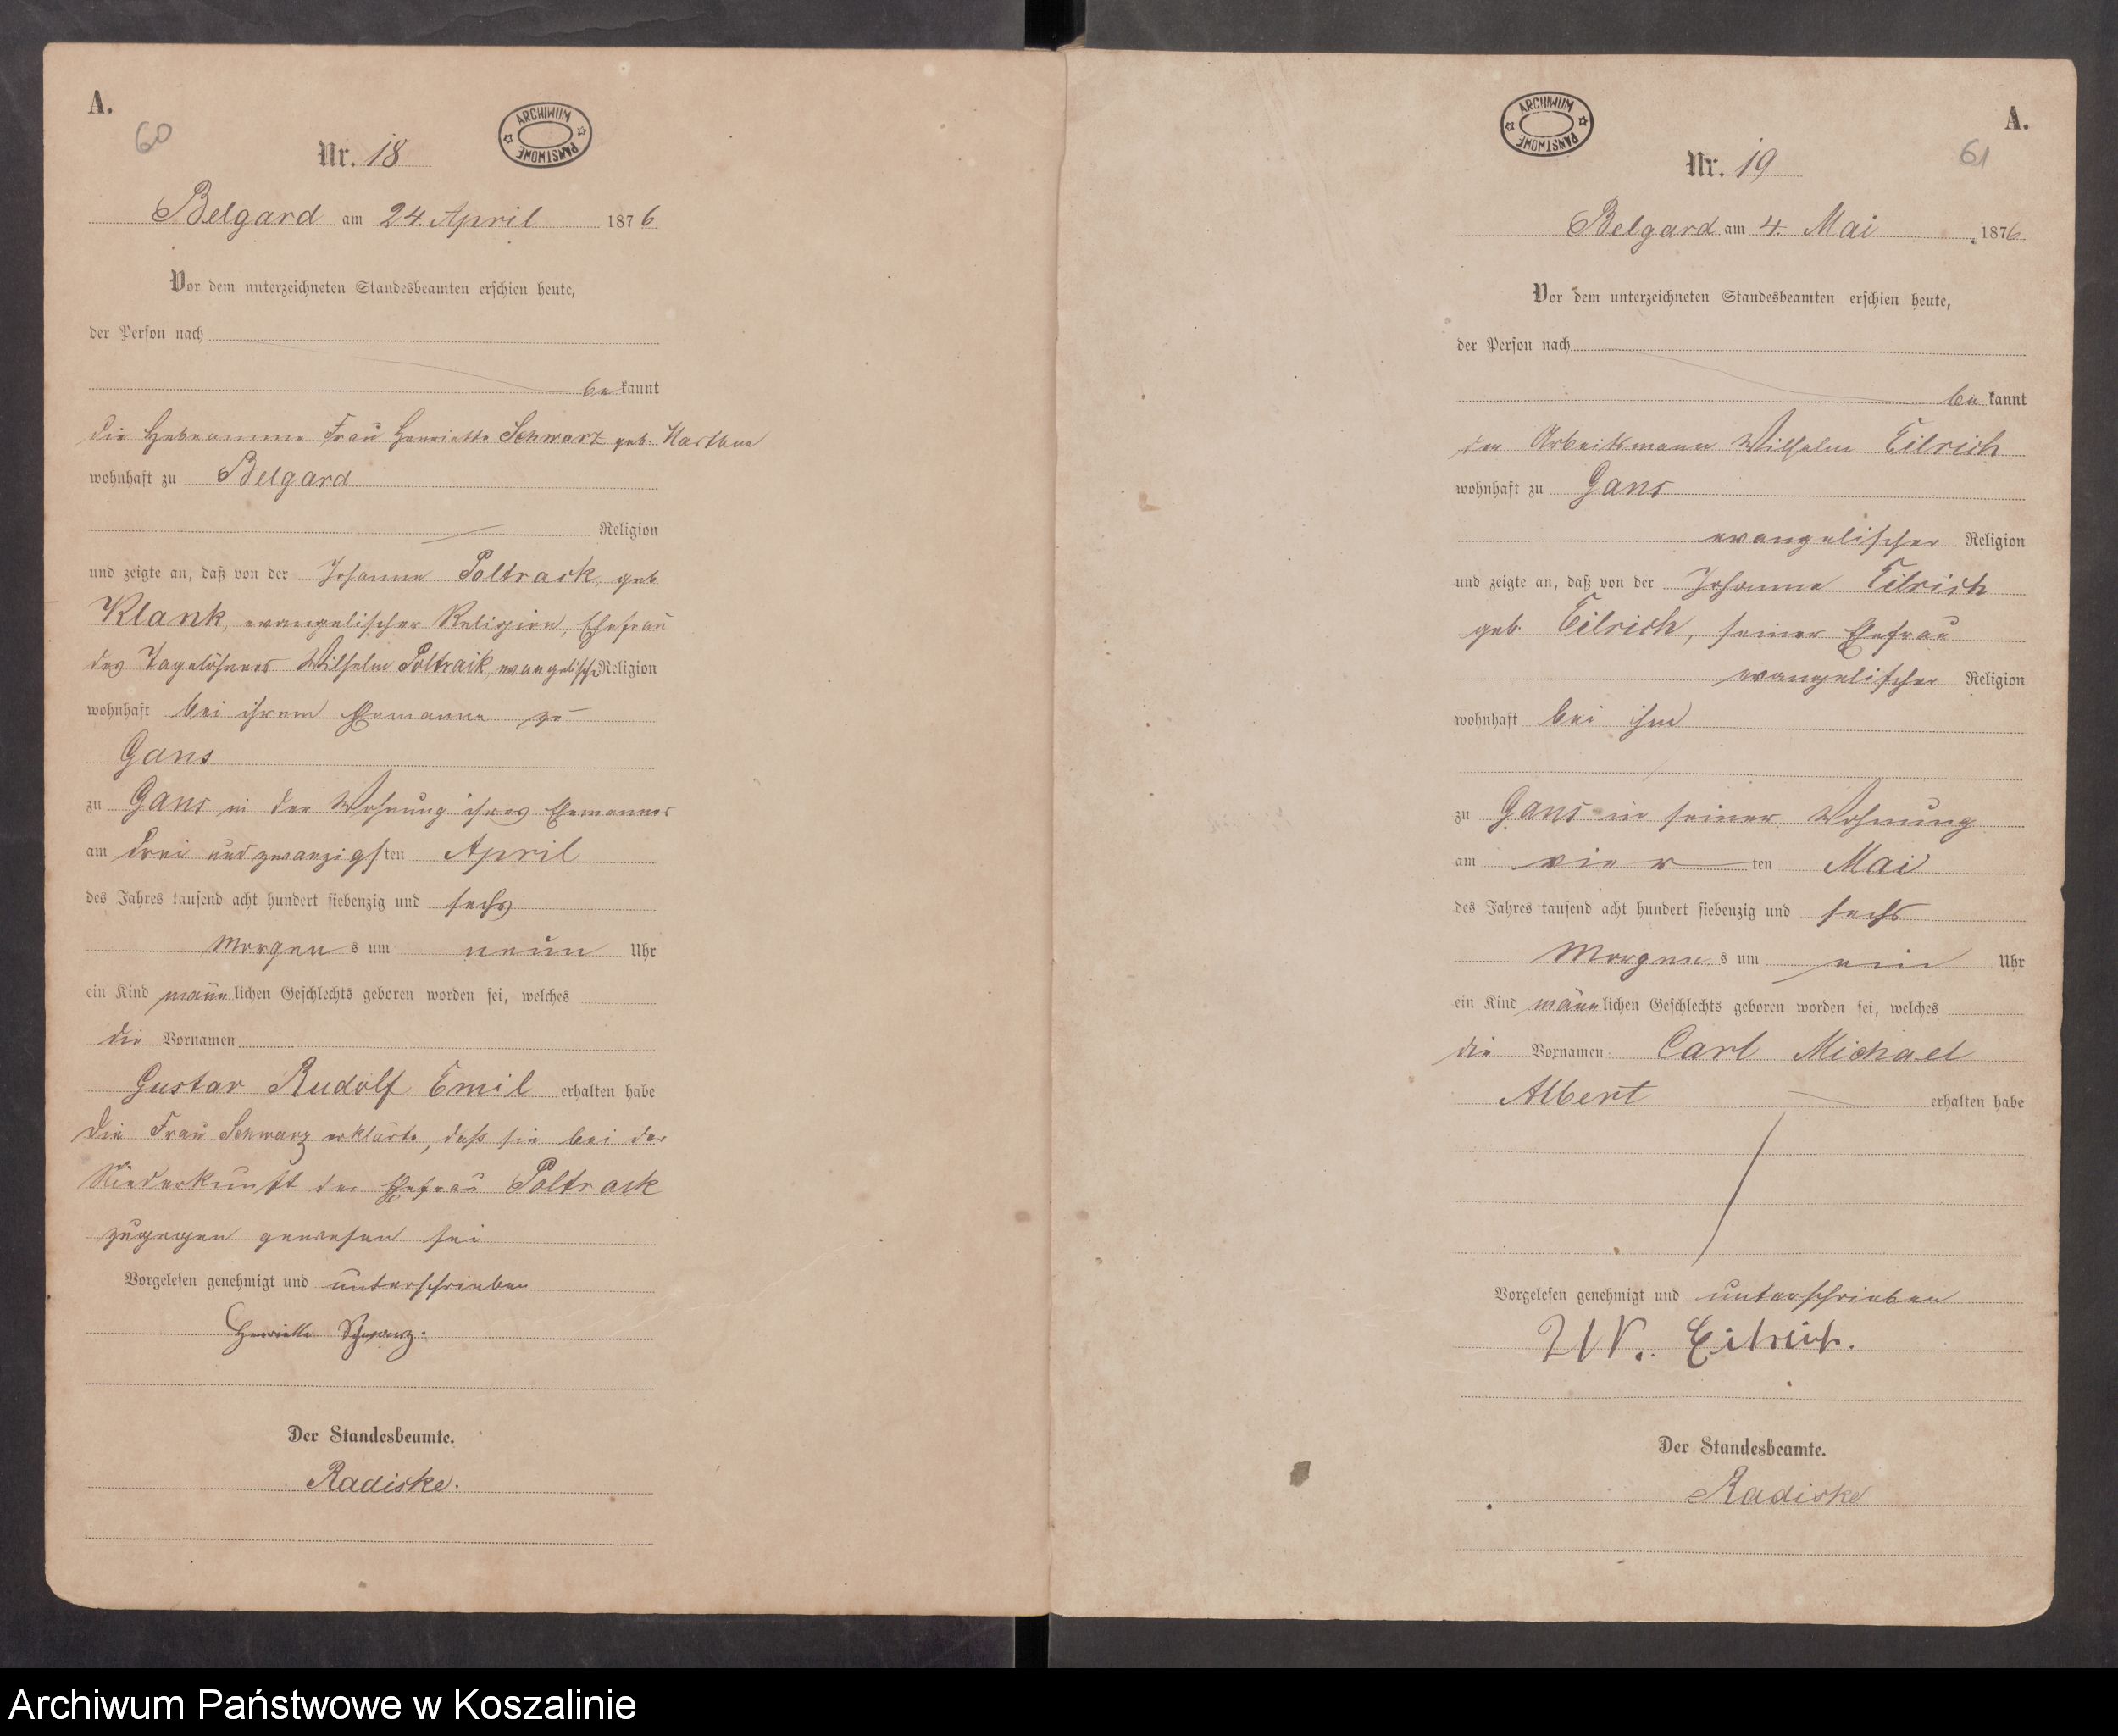 A.
60
ARCHIWUM PAŃSTWOWE
Nr. 18
Belgard am 24. April 1876
Vor dem unterzeichneten Standesbeamten erschien heute,
der Person nach
bekannt
die Hebeamme Frau Henriette Schwarz geb.
wohnhaft zu Belgard
Religion
und zeigte an, daß von der Johanne Poltrack, geb
Klank, evangelischer Religion, Ehefrau
des Tagelöhners Wilhelm Poltrack, evangelisch Religion
wohnhaft bei ihrem Ehemanne zu
Gans
zu Gans in der Wohnung ihres Ehemannes
am drei und zwanzigsten April
des Jahres tausend acht hundert siebenzig und sechs
Morgens um neun Uhr
ein Kind männlichen Geschlechts geboren worden sei, welches
die Vornamen
Gustav Rudolf Emil erhalten habe
Die Frau Schwarz erklärte, daß sie bei der
Niederkunft der Ehefrau Poltrack
zugegen gewesen sei
Vorgelesen genehmigt und unterschrieben
Henriette Schwarz.
Der Standesbeamte.
Radiske.
A.
61
ARCHIWUM PAŃSTWOWE
Nr. 19
Belgard am 4. Mai 1876
Vor dem unterzeichneten Standesbeamten erschien heute,
der Person nach
bekannt
der Arbeitsmann Wilhelm Eilrich
wohnhaft zu Gans
evangelischer Religion
und zeigte an, daß von der Johanne Eilrich
geb. Eilrich, seiner Ehefrau
evangelischer Religion
wohnhaft bei ihm
zu Gans in seiner Wohnung
am vierten Mai
des Jahres tausend acht hundert siebenzig und sechs
Morgens um ein Uhr
ein Kind männlichen Geschlechts geboren worden sei, welches
die Vornamen Carl Michael
Albert erhalten habe
Vorgelesen genehmigt und unterschrieben
W. Eilrich.
Der Standesbeamte.
Radiske
Archiwum Państwowe w Koszalinie